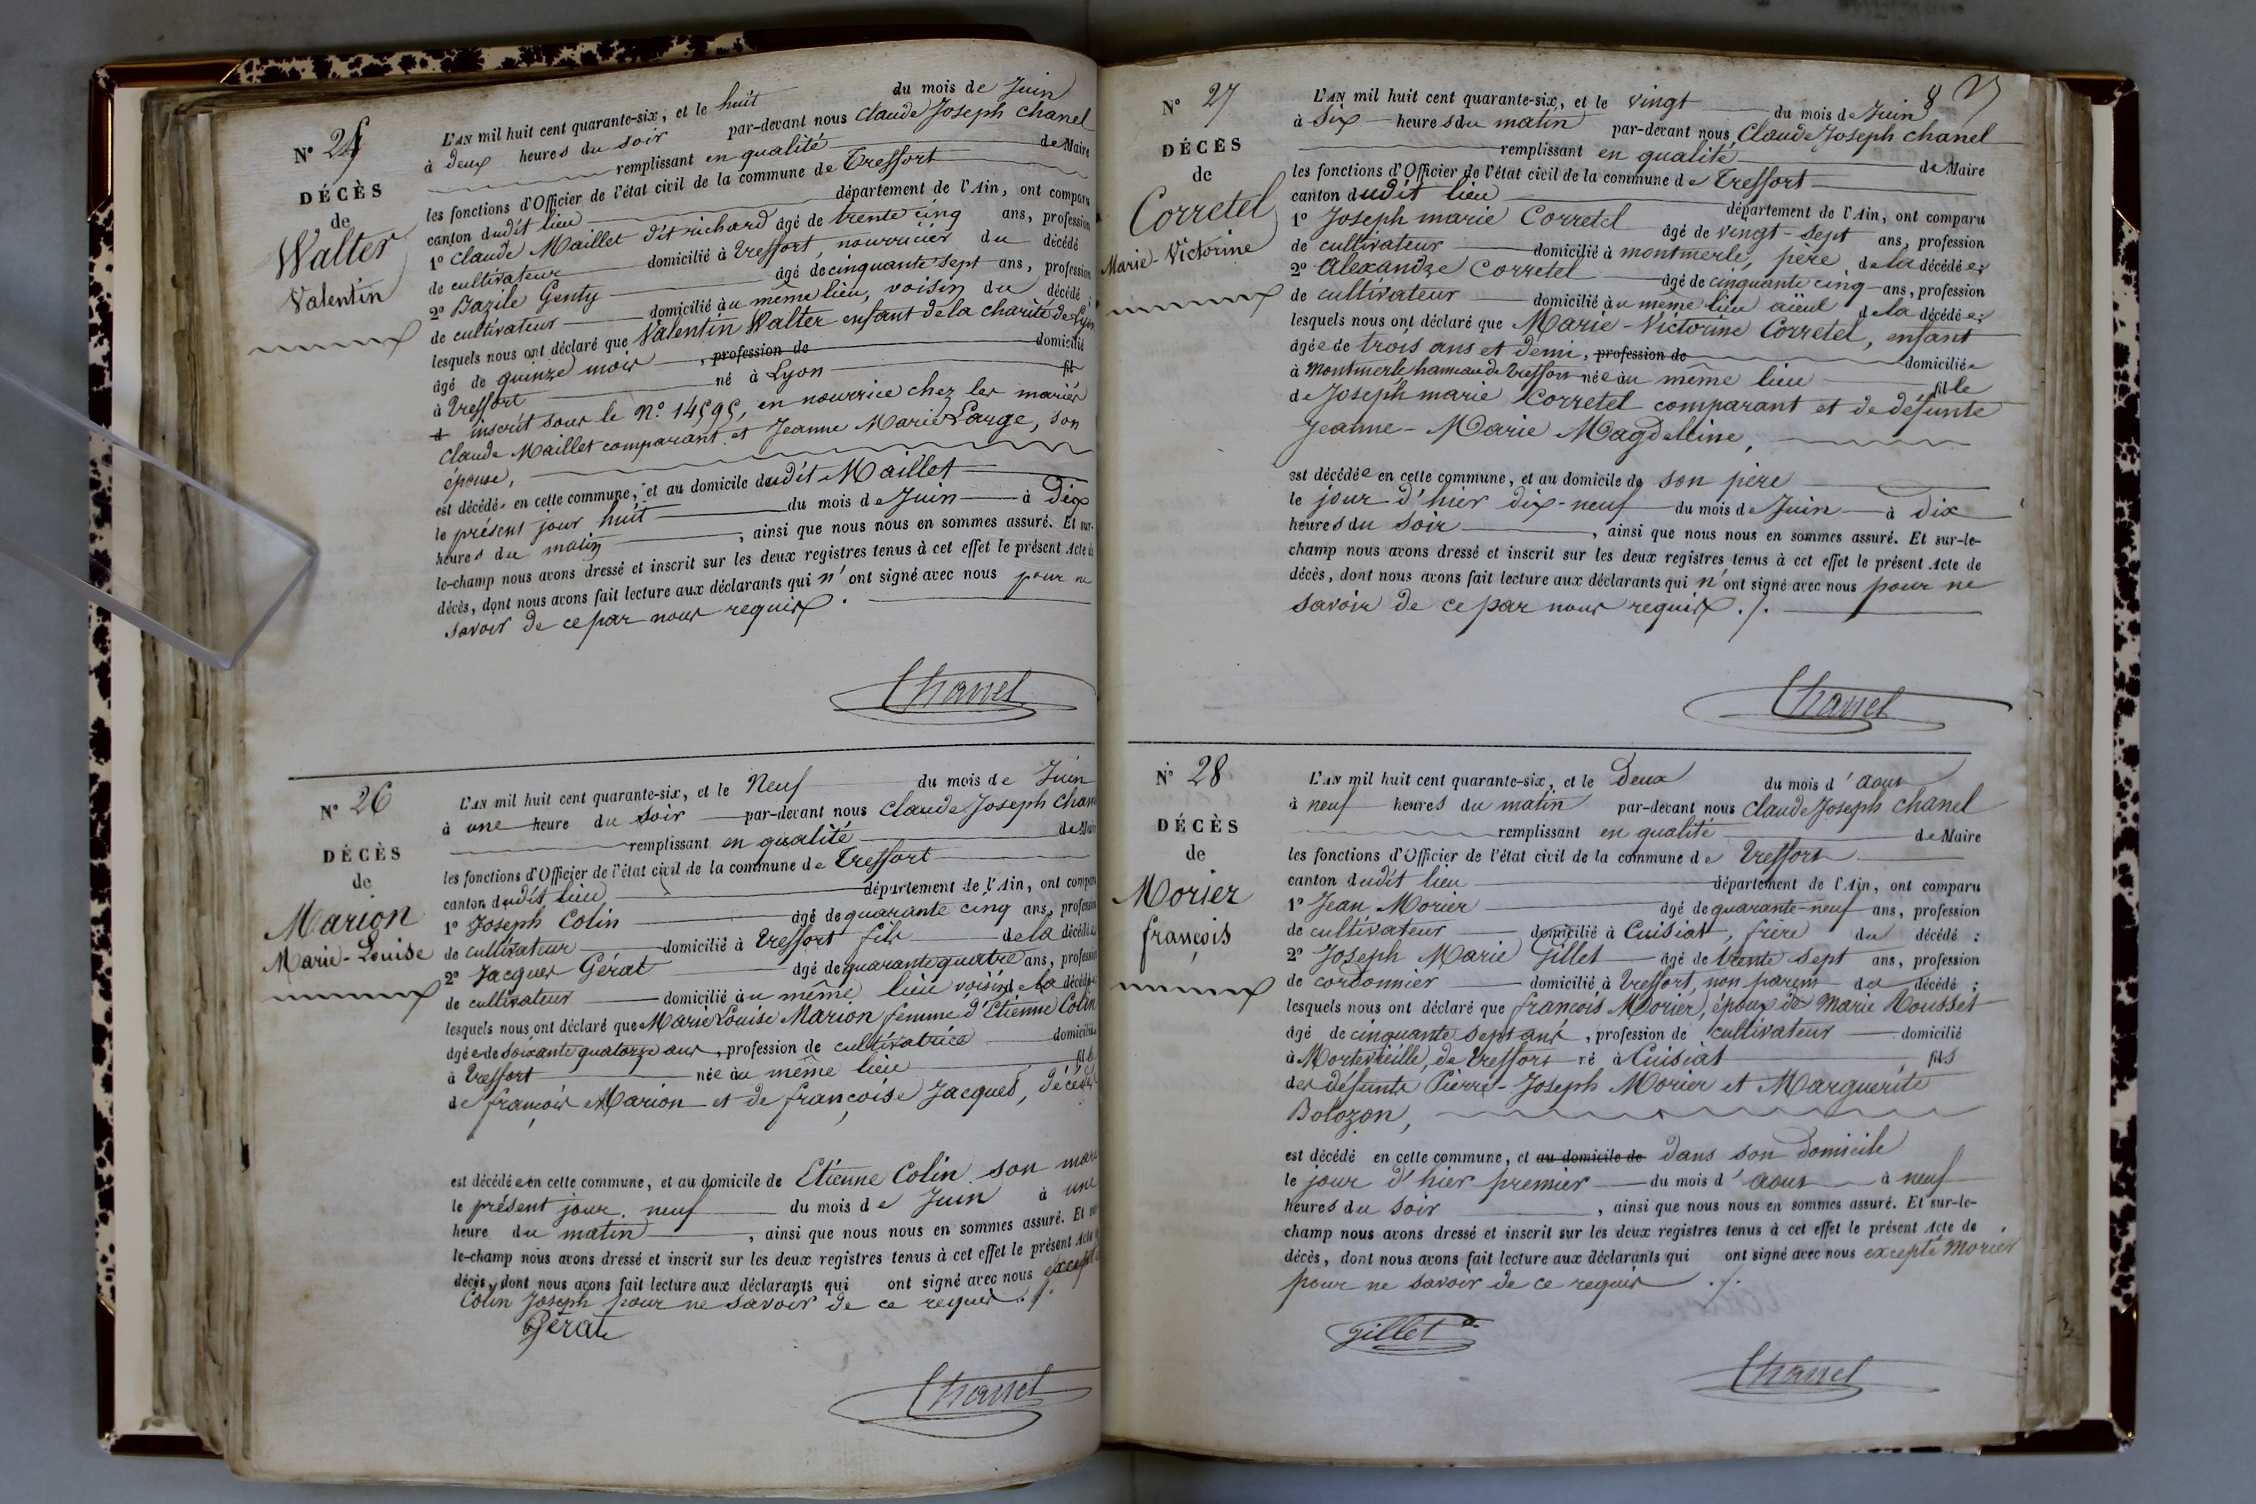 N° 25
DÉCÈS
de
Walter
Valentin
L'AN mil huit cent quarante-six, et le huit du mois de Juin
à deux heures du soir par-devant nous Claude Joseph Chanel
remplissant en qualité de Maire
les fonctions d'Officier de l'état civil de la commune de Treffort
canton dudit lieu département de l'Ain, ont comparu
1° Claude Maillet dit richard âgé de trente cinq ans, profession
de cultivateur domicilié à Treffort, nourricier du décédé
2° Bazile Genty âgé de cinquante sept ans, profession
de cultivateur domicilié au même lieu, voisin du décédé ;
lesquels nous ont déclaré que Valentin Walter enfant de la charité de Lyon
âgé de quinze mois, profession de domicilié
à Treffort né à Lyon fil
d inscrit sous le N° 14595, en nourrice chez les mariés
Claude Maillet comparant et Jeanne Marie Large, son
épouse,
est décédé en cette commune, et au domicile dudit Maillet
le présent jour huit du mois de Juin à Dix
heures du matin, ainsi que nous nous en sommes assuré. Et sur-
le-champ nous avons dressé et inscrit sur les deux registres tenus à cet effet le présent Acte de
décès, dont nous avons fait lecture aux déclarants qui n'ont signé avec nous pour ne
savoir de ce par nous requis.
Chanel
N° 26
DÉCÈS
de
Marion
Marie-Louise
L'AN mil huit cent quarante-six, et le Neuf du mois de Juin
à une heure du soir par-devant nous Claude Joseph Chanel
remplissant en qualité de Maire
les fonctions d'Officier de l'état civil de la commune de Treffort
canton dudit lieu département de l'Ain, ont comparu
1° Joseph Colin âgé de quarante cinq ans, profession
de cultivateur domicilié à Treffort fils de la décédée
2° Jacques Gérat âgé de quarante quatre ans, profession
de cultivateur domicilié au même lieu voisin de la décédée
lesquels nous ont déclaré que Marie Louise Marion femme d'Etienne Colin
âgée de soixante quatorze ans, profession de cultivatrice domiciliée
à Treffort née au même lieu fille
de françois Marion et de françoise Jacques, décédés
est décédée en cette commune, et au domicile de Etienne Colin son mari
le présent jour neuf du mois de Juin à une
heure du matin, ainsi que nous nous en sommes assuré. Et sur-
le-champ nous avons dressé et inscrit sur les deux registres tenus à cet effet le présent Acte de
décès, dont nous avons fait lecture aux déclarants qui ont signé avec nous excepté
Colin Joseph pour ne savoir de ce requis ./.
Gérat
Chanel
N° 27
DÉCÈS
de
Corretel
Marie-Victorine
L'AN mil huit cent quarante-six, et le vingt du mois de Juin
à six heures du matin par-devant nous Claude Joseph Chanel
remplissant en qualité de Maire
les fonctions d'Officier de l'état civil de la commune de Treffort
canton dudit lieu département de l'Ain, ont comparu
1° Joseph marie Corretel âgé de vingt-sept ans, profession
de cultivateur domicilié à montmerle, père de la décédée ;
2° Alexandre Corretel âgé de cinquante cinq ans, profession
de cultivateur domicilié au même lieu aïeul de la décédée ;
lesquels nous ont déclaré que Marie-Victorine Corretel, enfant
âgée de trois ans et demi, profession de domiciliée
à Montmerle hameau de Treffort née au même lieu fille
de Joseph marie Corretel comparant et de défunte
Jeanne-Marie Magdelline,
est décédée en cette commune, et au domicile de son père
le jour d'hier dix-neuf du mois de Juin à dix
heures du soir, ainsi que nous nous en sommes assuré. Et sur-le-
champ nous avons dressé et inscrit sur les deux registres tenus à cet effet le présent Acte de
décès, dont nous avons fait lecture aux déclarants qui n'ont signé avec nous pour ne
savoir de ce par nous requis ./.
Chanel
N° 28
DÉCÈS
de
Morier
françois
L'AN mil huit cent quarante-six, et le Deux du mois d'aout
à neuf heures du matin par-devant nous Claude Joseph Chanel
remplissant en qualité de Maire
les fonctions d'Officier de l'état civil de la commune de Treffort
canton dudit lieu département de l'Ain, ont comparu
1° Jean Morier âgé de quarante-neuf ans, profession
de cultivateur domicilié à Cuisiat, frère du décédé :
2° Joseph Marie Gillet âgé de trente sept ans, profession
de cordonnier domicilié à Treffort, non parent du décédé ;
lesquels nous ont déclaré que françois Morier, époux de Marie Mousset
âgé de cinquante sept ans, profession de cultivateur domicilié
à Mortevieille, de Treffort né à Cuisiat, fils
des défunts Pierre-Joseph Morier et Marguerite
Bolozon,
est décédé en cette commune, et au domicile de dans son Domicile
le jour d'hier premier du mois d'aout à neuf
heures du soir, ainsi que nous nous en sommes assuré. Et sur-le-
champ nous avons dressé et inscrit sur les deux registres tenus à cet effet le présent Acte de
décès, dont nous avons fait lecture aux déclarants qui ont signé avec nous excepté Morier
pour ne savoir de ce requis ./.
Gillet
Chanel